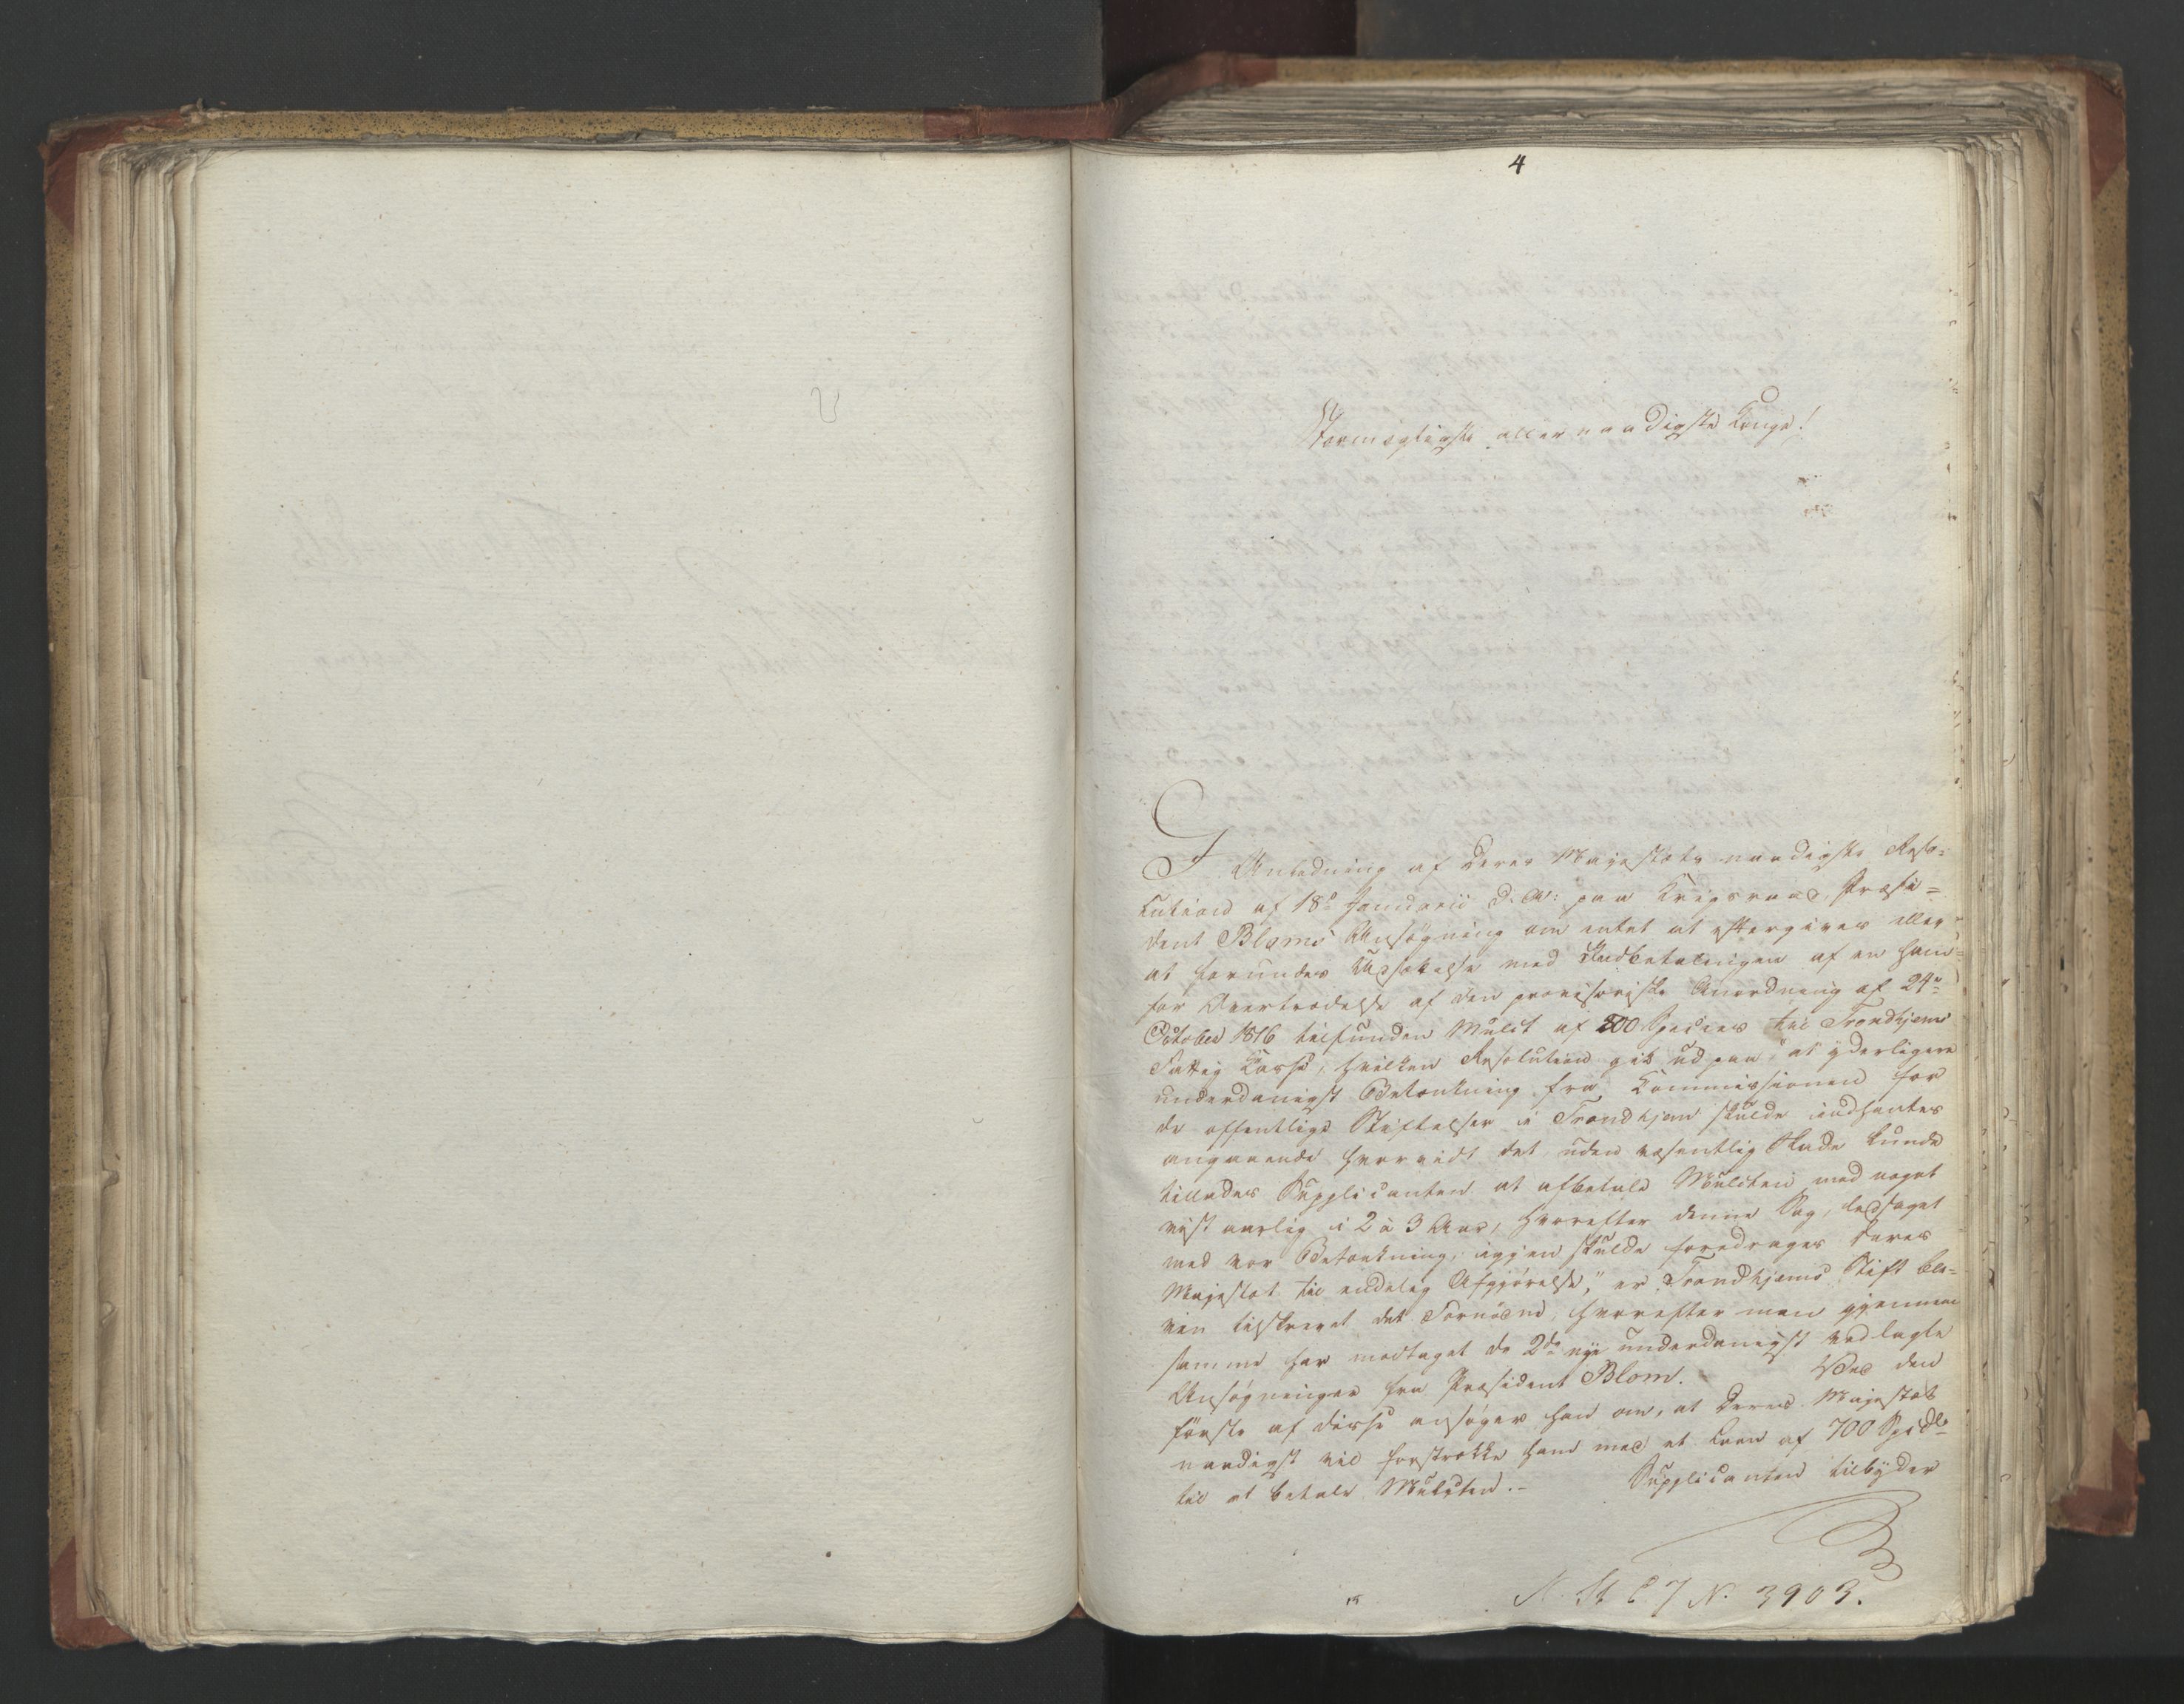 4
Stormægtigste allernaadigste Konge!
I Anledning af Deres Majestæts naadigste Reso-
lution af 18de Januarii d. A: paa Krigsraad, Præsi=
dent Bloms Ansøgning om entet at eftergives eller
at forundes Udsættelse med Indbetalingen af en ham
for Overtrædelse af den provisoriske Anordning af 24de
October 1816 tilfunden Mulct af 200 Species til Trondhjems
Fattig Casse, hvilken Resolution gik ud paa, "at yderligere
underdanigst Betænkning fra Commissionen for
de offentlige Stiftelser i Trondhjem skulde indhentes
angaaende hvorvidt det uden væsentlig Skade kunde
tillades Supplicanten at afbetale Mulcten med noget
vist aarlig i 2 à 3 Aar, hvorefter denne Sag, ledsaget
med vor Betænkning, igjen skulde foredrages Deres
Majestæt til endelig Afgjørelse," er Trondhjems Stift ble-
ven tilskrevet det Fornødne, hvorefter man gjennem
samme har modtaget de 2de nye underdanigst vedlagte
Ansøgninger fra Præsident Blom. - Ved den
første af disse ansøger han om, at Deres Majestæt
naadigst vil forstrække ham med et Laan af 700 Spdlr
til at betale Mulcten. - Supplicanten tilbyder
N. St. C. J N. 3903.